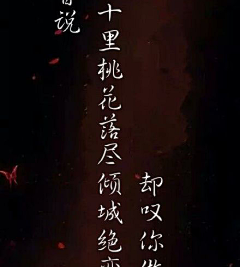 说
十里桃花落尽倾城绝
却叹你